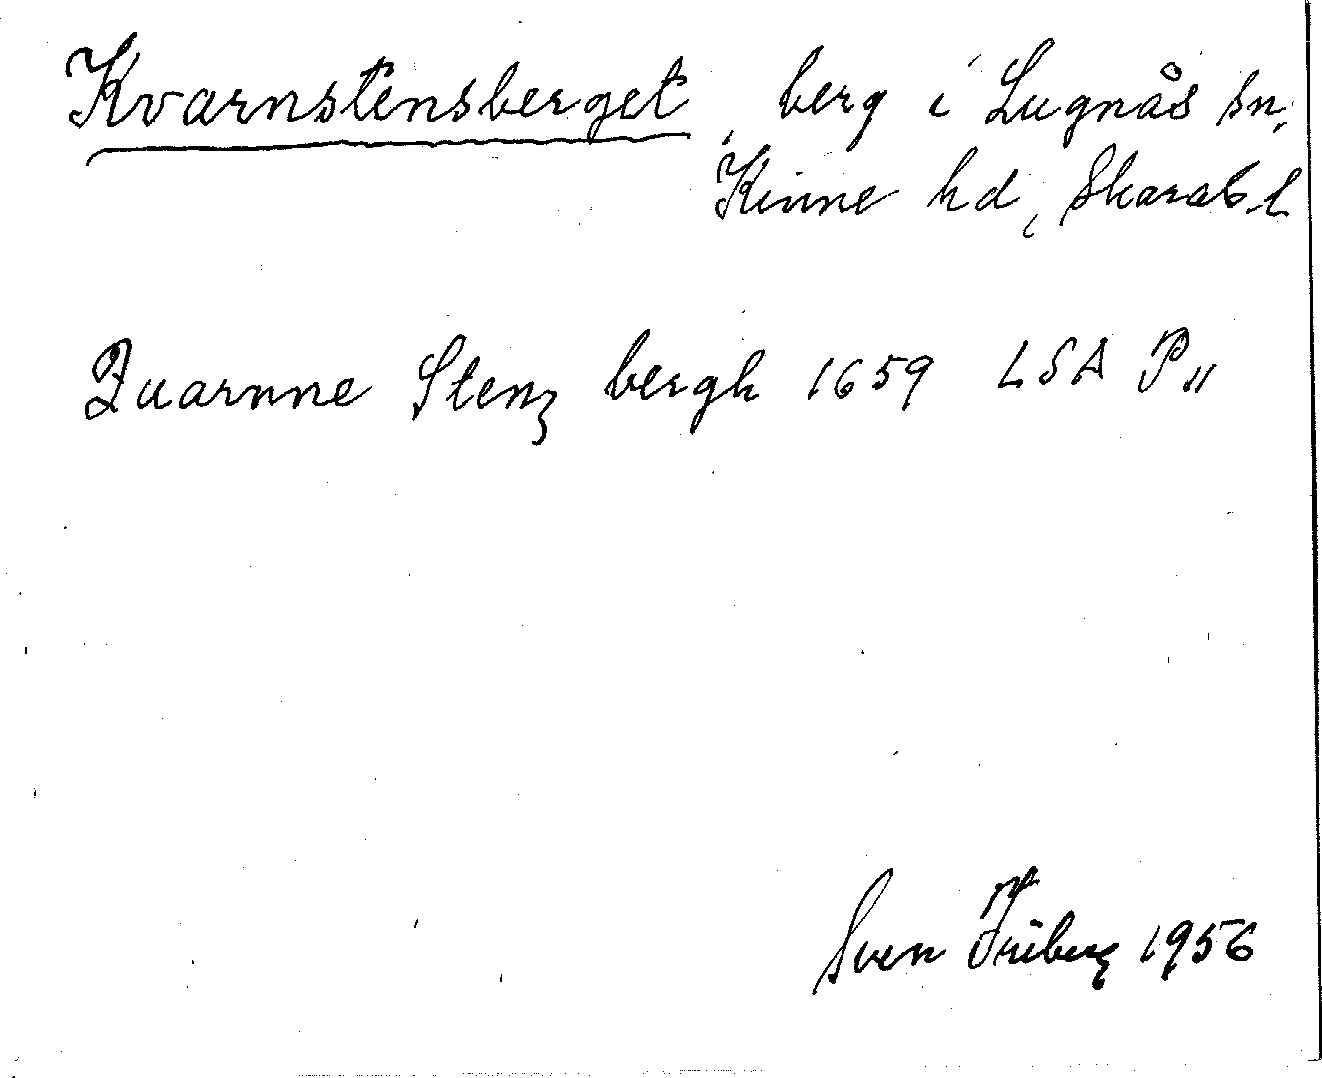 Kvarnstensberget, berg i Lugnås sn,
Kinne hd, Skarab l
Quarnne Stenz bergh 1659 LSA P11
Sven Friberg 1956